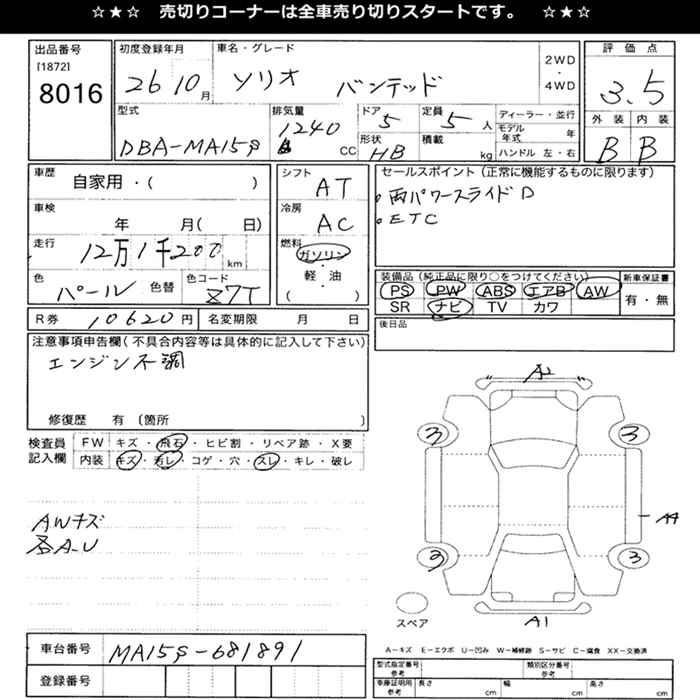 ☆★☆ 売切りコーナーは全車売り切りスタートです。 ☆★☆
出品番号
[1872]
8016
初度登録年月
26 10月
車名・グレード
ソリオ バンデッド
2WD
・
4WD
評価点
3.5
外装 内装
B B
型式
DBA-MA15S
排気量
1240
CC
ドア
5
形状
HB
定員
5人
積載
kg
ディーラー・並行
モデル年式 年
ハンドル 左・右
車歴
自家用・( )
車検
年 月( 日)
走行
12万1千200km
色
パール 色替
色コード
Z7T
シフト
AT
冷房
AC
燃料
ガソリン
・
軽・油
( )
セールスポイント(正常に機能するものに限ります)
。両パワースライドD
。ETC
装備品(純正品に限り○をつけてください)
PS PW ABS エアB AW
SR ナビ TV カワ
新車保証書
有・無
後日品
R券 10620円 名変期限 月 日
注意事項申告欄(不具合内容等は具体的に記入して下さい)
エンジン不調
修復歴 有(箇所 )
検査員
記入欄
FW キズ・飛石・ヒビ割・リペア跡・X要
内装 キズ・汚レ・コゲ・穴・スレ・キレ・破レ
AWキズ
各A-U
A2
3 3
A4
3 3
スペア
A1
車台番号 MA15S-681891
登録番号
A-キズ E-エクボ U-凹み W-補修跡 S-サビ C-腐食 XX-交換済
型式指定番号
参考
類別区分番号
参考
車庫証明用
参考
長さ cm 幅 cm 高さ cm